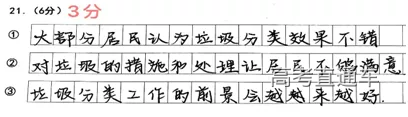 21.(6分) 3分
① 大部分居民认为垃圾分类效果不错
② 对垃圾的措施和处理让居民不够满意
③ 垃圾分类工作的前景会越越来越好.
高考直通车